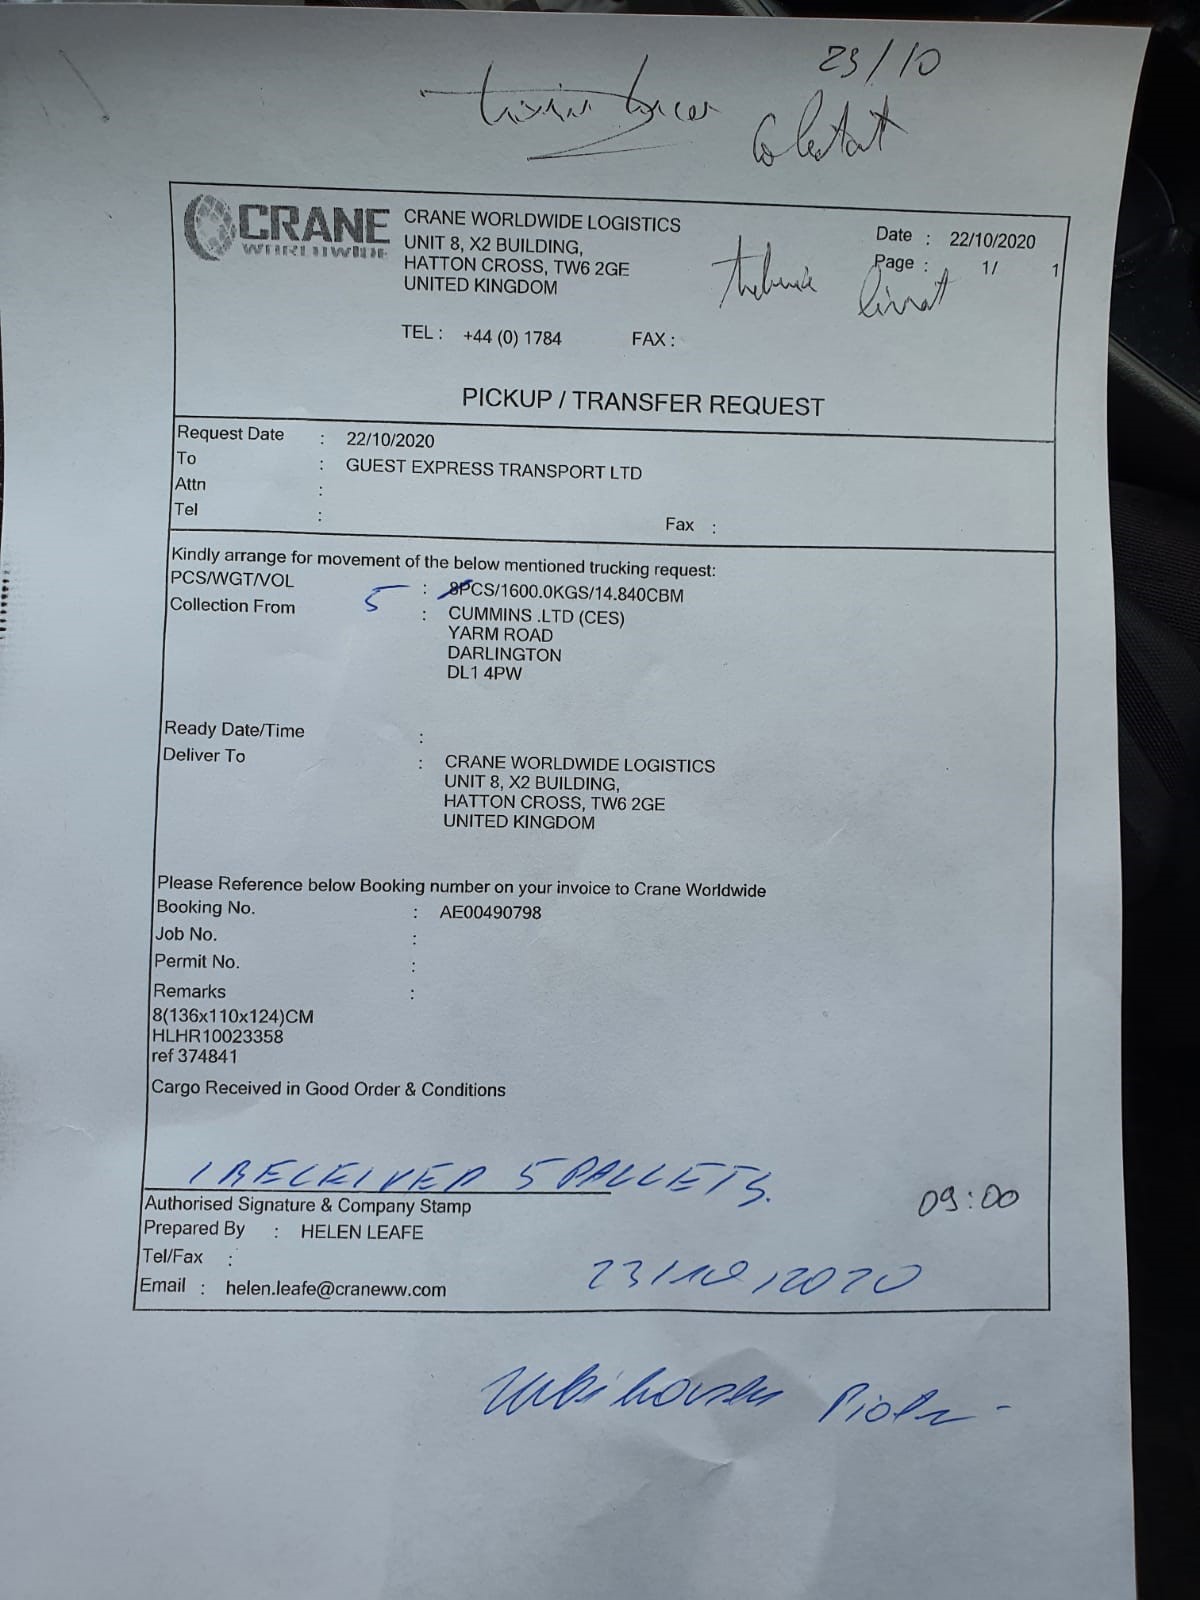 23/10
CRANE
WORLDWIDE
CRANE WORLDWIDE LOGISTICS
UNIT 8, X2 BUILDING,
HATTON CROSS, TW6 2GE
UNITED KINGDOM
Date : 22/10/2020
Page : 1/ 1
TEL : +44 (0) 1784 FAX :
PICKUP / TRANSFER REQUEST
Request Date : 22/10/2020
To : GUEST EXPRESS TRANSPORT LTD
Attn :
Tel : Fax :
Kindly arrange for movement of the below mentioned trucking request:
PCS/WGT/VOL : 8PCS/1600.0KGS/14.840CBM
5
Collection From : CUMMINS .LTD (CES)
YARM ROAD
DARLINGTON
DL1 4PW
Ready Date/Time :
Deliver To : CRANE WORLDWIDE LOGISTICS
UNIT 8, X2 BUILDING,
HATTON CROSS, TW6 2GE
UNITED KINGDOM
Please Reference below Booking number on your invoice to Crane Worldwide
Booking No. : AE00490798
Job No. :
Permit No. :
Remarks :
8(136x110x124)CM
HLHR10023358
ref 374841
Cargo Received in Good Order & Conditions
I RECEIVED 5 PALLETS.
Authorised Signature & Company Stamp
09:00
Prepared By : HELEN LEAFE
Tel/Fax :
23/10/2020
Email : helen.leafe@craneww.com
Piotr